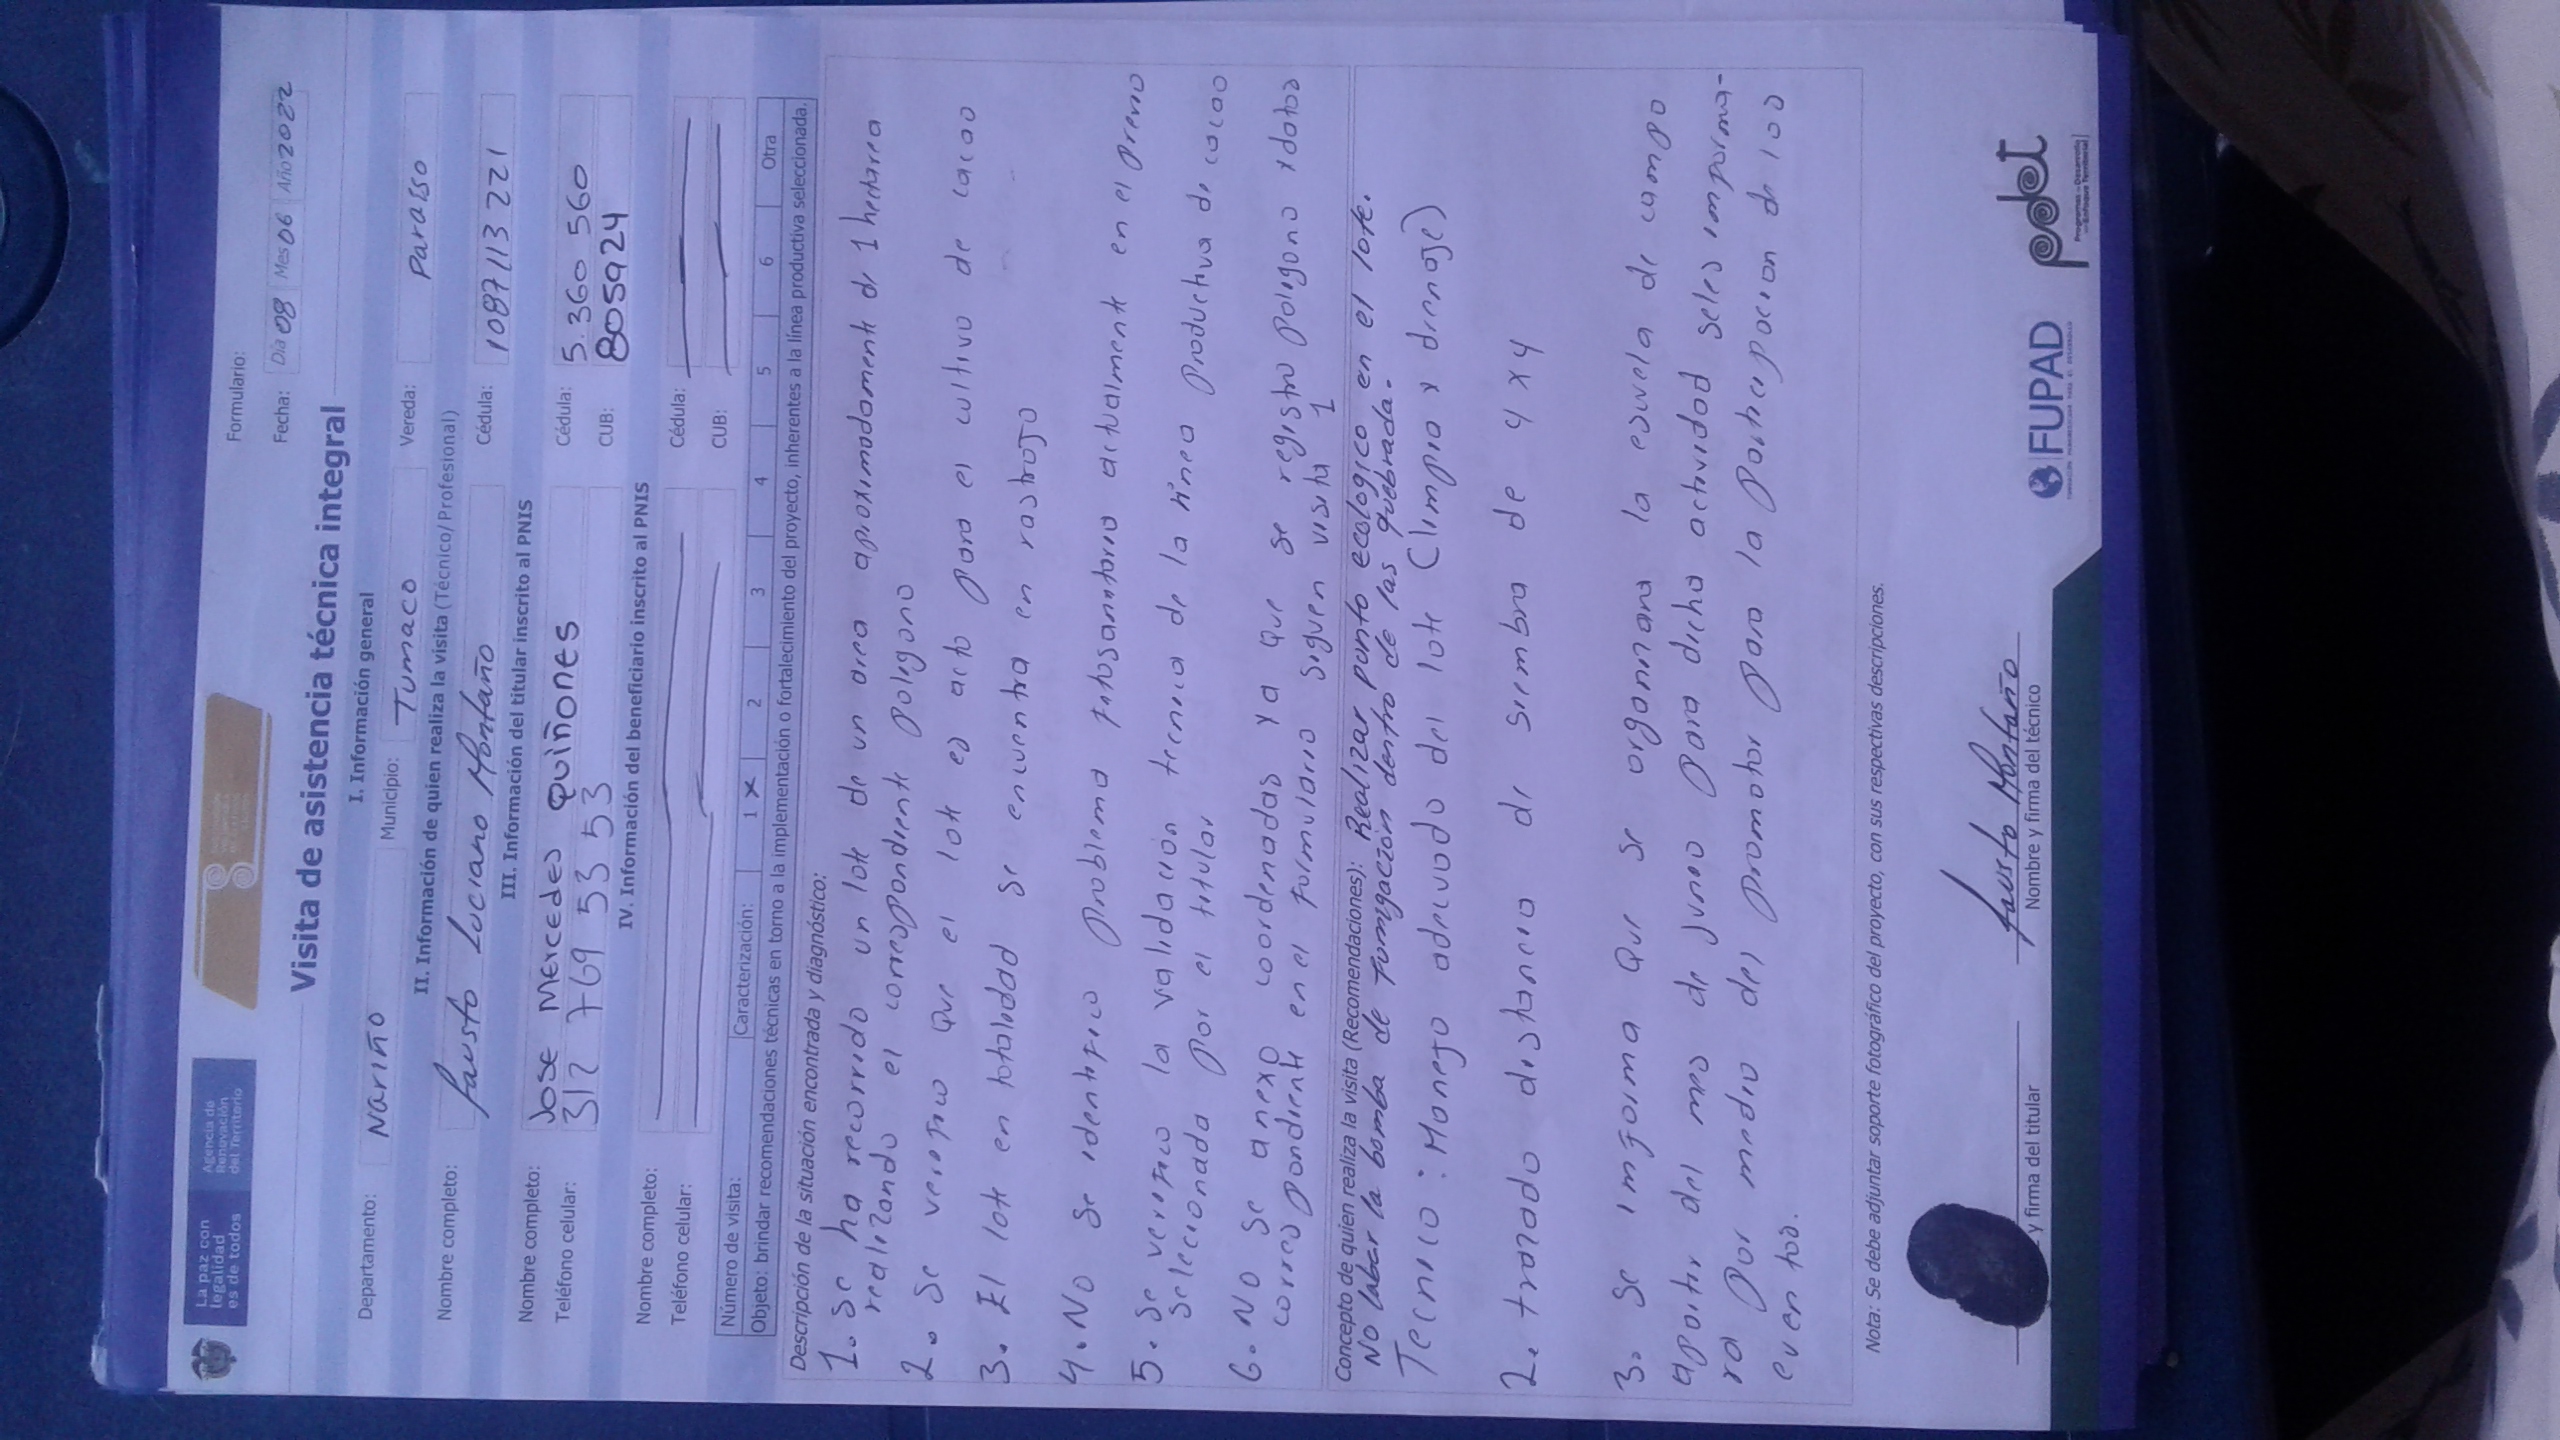 La paz con
legalidad
es de todos
Agencia de
Renovación
del Territorio
Formulario:
Fecha: Día 08 Mes 06 Año 2022
Visita de asistencia técnica integral
I. Información general
Departamento: Nariño Municipio: Tumaco Vereda: Paraiso
II. Información de quien realiza la visita (Técnico/Profesional)
Nombre completo: Fausto Luciano Montaño Cédula: 1087113221
III. Información del titular inscrito al PNIS
Nombre completo: Jose Mercedes Quiñones Cédula: 5.360 560
Teléfono celular: 312 769 53 53 CUB: 805924
IV. Información del beneficiario inscrito al PNIS
Nombre completo: Cédula:
Teléfono celular: CUB:
Número de visita: Caracterización: 1 X 2 3 4 5 6 Otra
Objeto: brindar recomendaciones técnicas en torno a la implementación o fortalecimiento del proyecto, inherentes a la línea productiva seleccionada.
Descripción de la situación encontrada y diagnóstico:
1. Se ha recorrido un lote de un area aproximadamente de 1 hectarea
realizando el correspondiente poligono
2. Se verifico que el lote es acto para el cultivo de cacao
3. El lote en totalidad se encuentra en rastrojo
4. No se identifico problema fitosanitario actualmente en el predio
5. Se verifico la validación tecnica de la linea productiva de cacao
seleccionada por el titular
6. No se anexo coordenadas ya que se registro poligono y datos
correspondiente en el formulario siguen visita 1
Concepto de quien realiza la visita (Recomendaciones): Realizar punto ecologico en el lote.
No labar la bomba de fumigación dentro de las quebrada.
Tecnico: Manejo adecuado del lote (limpia y drenaje)
2. trazado distancia de siembra de 4 x 4
3. Se imforma que se organizara la escuela de campo
apartir del mes de junio para dicha actividad seles imforma-
ra por medio del promotor para la participacion de los
eventos.
Nota: Se debe adjuntar soporte fotográfico del proyecto, con sus respectivas descripciones.
Fausto Montaño
y firma del titular Nombre y firma del técnico
FUPAD
pdet
Programas de Desarrollo
con Enfoque Territorial